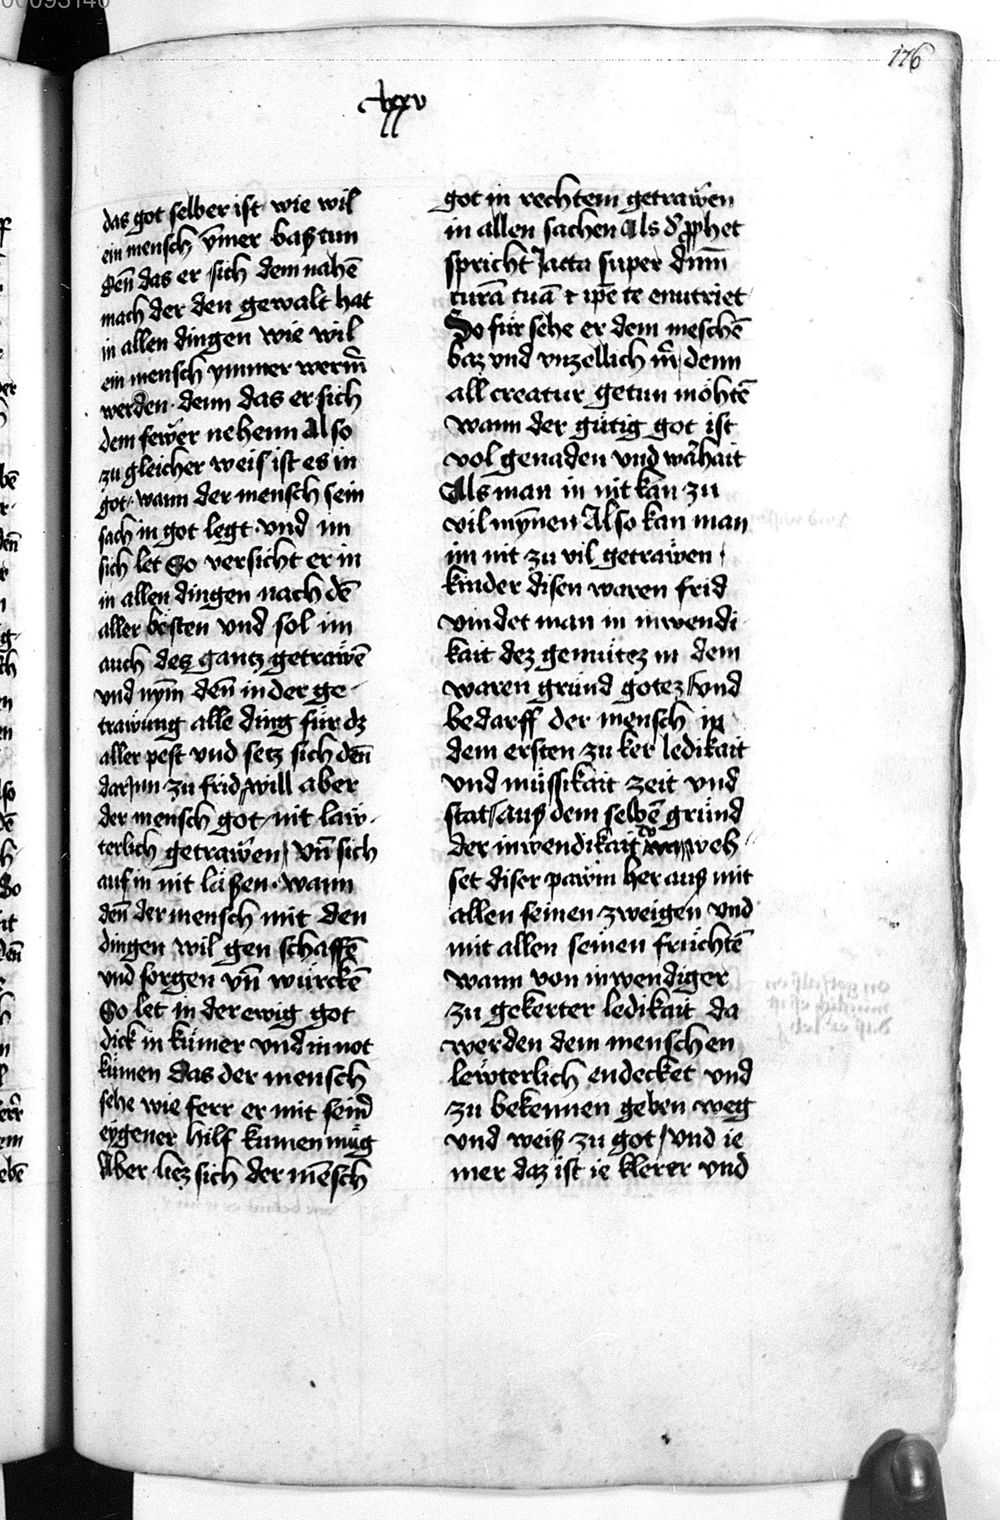 176
lxxv
das got selber ist · wie wil
ein mensch v̄mer baß tun
den̄ das er sich dem nahē
mach der den gewalt hat
in allen dingen wie wil
ein mensch ymmer werm̄
werden · denn das er sich
dem fewer nehenn Also
zu gleicher weis ist es in
got · wann der mensch sein
sach in got legt · vnd im
sich let So versicht er in
in allen dingen nach dē
aller bösten vnd sol im
auch dez gantz getrawē
vnd nym̄ den̄ in der ge-
trawung alle ding für dz
aller pest vnd setz sich den̄
darjnn zu frid / will aber
der mensch got nit law-
terlich getrawen / vn̄ sich
auf in nit laßen · wann
den̄ der mensch mit den
dingen wil gen schaffē
vnd sorgen vn̄ würckē
So let in der ewig got
dick in kümer vnd in not
kümen das der mensch
sehe wie ferr er mit seind
eygener hilf kumen müg
Aber liez sich der mēsch
got in rechtem getrawen
in allen sachen Als d̄ ꝓphet
spricht Jacta super dnm̄
curā tuā ⁊ ip̄e te enutriet
So für sehe er dem meschē
baz vnd vnzellich mr̄ denn
all creatur getun möhtē
wann der gütig got ist
vol genaden vnd warhait
Als man in nit kan zu
vil mynnen Also kan man
im nit zu vil getrawen /
kinder disen waren frid
vindet man in inwendi-
kait dez gemütez in dem
waren grund gotez / vnd
bedarff der mensch in
dem ersten zu ker ledikait
vnd müssikait zeit vnd
stat / auß dem selbē gründ
der inwendikait weh-
set diser pawm her auß mit
allen seinen zweigen vnd
mit allen seinen früchtē
wann von inwendiger
zu gekerter ledikait da
werden dem menschen
lewterlich endecket vnd
zu bekennen geben weg
vnd weiß zu got / vnd ie
mer daz ist ie klerer vnd